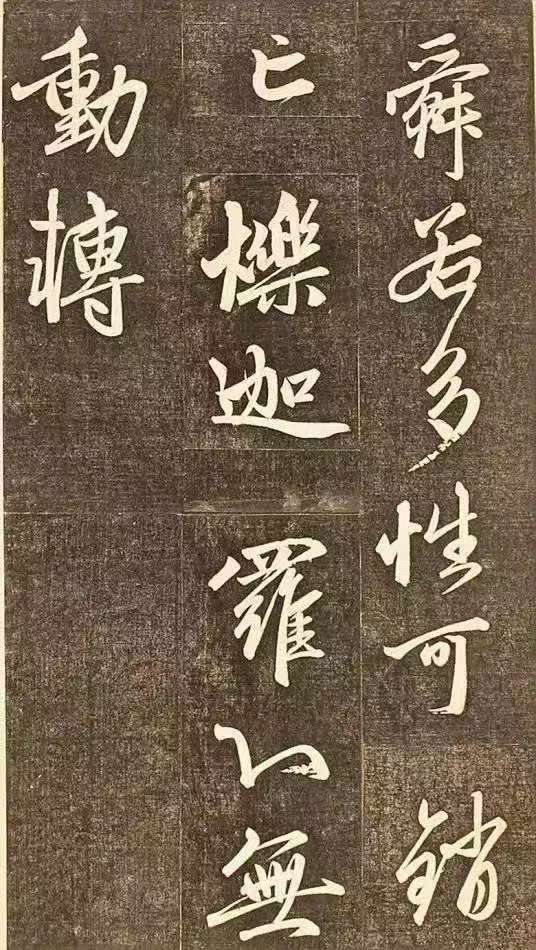 舜若多性可銷
亡爍迦羅心無
動轉